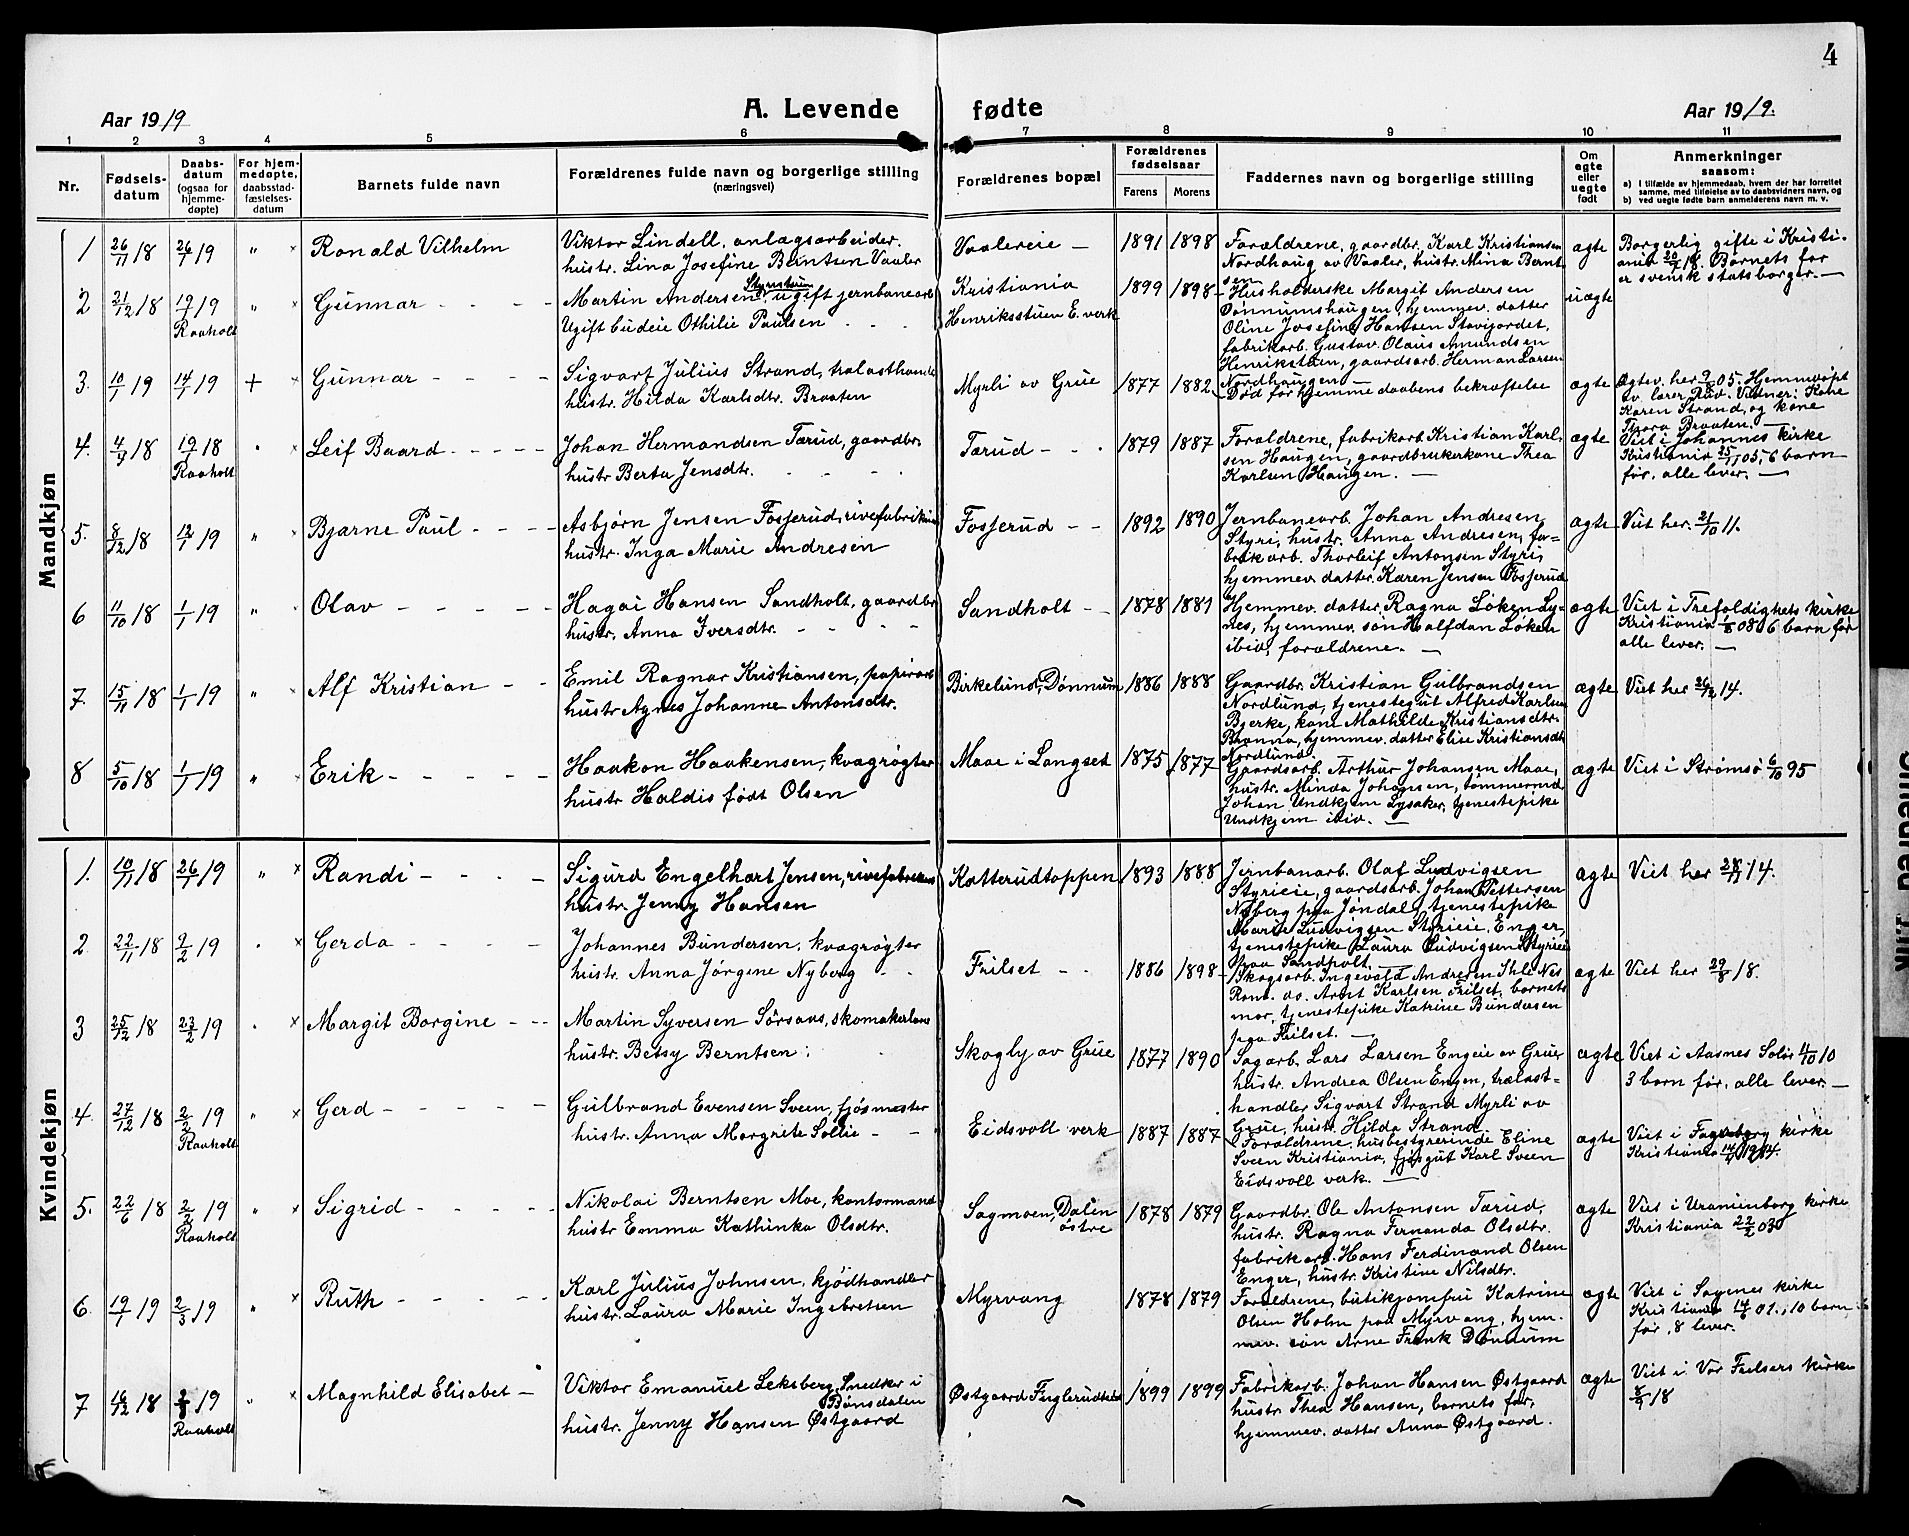 4
Aar 1919
A. Levende fødte
Aar 1919.
1 2 3 4 5 6 7 8 9 10 11
Nr.
Fødsels-
datum
Daabs-
datum
(ogsaa for
hjemme-
døpte)
For hjem-
medøpte,
daabsstad-
fæstelses-
datum
Barnets fulde navn
Forældrenes fulde navn og borgerlige stilling
(næringsvei)
Forældrenes bopæl
Forældrenes
fødselsaar
Farens Morens
Faddernes navn og borgerlige stilling
Om
ægte
eller
uegte
født
Anmerkninger
saasom:
a) I tilfælde av hjemmedaab, hvem der har forrettet
samme, med tilføielse av to daabsvidners navn, og
b) ved uegte fødte barn anmelderens navn m. v.
Mandkjøn
1 26/11 18 26/1 19 " × Ronald Vilhelm
Viktor Lindell, anlægsarbeider.
hustr. Lina Josefine Berntsen Vaaler
Vaalereie — 1891 1898
Forældrene, gaardbr. Karl Kristiansen
Nordhaug av Vaaler, hustr. Mina Bernt-
sen
ægte
Borgerlig gifte i Kristi-
ania 20/7 18. Barnets far
er svensk statsborger. —
2 21/12 18 19/1 19 " × Gunnar - - - -
Raaholt
Martin Andersen Styrstuen, ugift jernbanearb.
Ugift budeie Othilie Paulsen - - -
Kristiania
Henriksstuen E. verk
1899 1898
Husholderske Margit Andersen
Dønnumshaugen, hjemmev. datter
Oline Josefine Hansen Stavijordet,
fabrikarb. Gustav Olaus Amundsen
Henrikstuen, gaardsarb. Herman Larsen
Nordhaugen
uægte
3. 10/1 19 14/1 19 + × Gunnar - - - -
Sigvart Julius Strand, trælasthandl.
hustr. Hilda Karlsdtr. Braaten
Myrli av Grue 1877 1882
Død før hjemmedaabens bekræftelse
ægte
Ægtev. her 9/6 05. Hjemmedøpt
av lærer Rud. Vidner: Kone
Karen Strand, og kone
Thora Braaten. —
4. 4/9 18 19/1 18 " × Leif Baard - - - -
Raaholt
Johan Hermandsen Tærud, gaardbr.
hustr Berta Jensdtr. - - - -
Tærud - - - 1879 1887
Forældrene, fabrikarb. Kristian Karl-
sen Haugen, gaardbrukerkone Thea
Karlsen Haugen. —
ægte
Viet i Johannes kirke
Kristiania 25/11 05, 6 barn
før, alle lever. —
5. 8/12 18 12/1 19 " × Bjarne Paul - - - -
Asbjørn Jensen Fosserud, rivefabrikan
hustr. Inga Marie Andresen
Fosserud - - 1892 1890
Jernbanearb. Johan Andresen
Styri, hustr. Anna Andresen, fa-
brikarb. Thorleif Antonsen Styri,
hjemmev. datter Karen Jensen Fosserud
ægte
Viet her 21/10 11.
6 11/10 18 1/1 19 " Olav - - - - -
Hagai Hansen Sandholt, gaardbr.
hustr. Anna Iversdtr. - - - -
Sandholt - - 1878 1881
Hjemmev. datter, Ragna Løken Ly-
nes, hjemmev. søn Halfdan Løken
ibid, forældrene. —
ægte
Viet i Trefoldighets kirke
Kristiania 1/8 08. 6 barn før
alle lever. —
7. 15/11 18 1/1 19 " × Alf Kristian - -
Emil Ragnar Kristiansen, papirarb.
hustr Agnes Johanne Antonsdtr.
Birkelund, Dønnum 1886 1888
Gaardbr. Kristian Gulbrandsen
Nordlund, tjenestegut Alfred Karlsen
Bjerke, kone Mathilde Kristiansdtr.
Brænna, hjemmev. datter Elise Kristiansdtr
Nordlund.
ægte
Viet her 26/12 14.
8 5/10 18 1/1 19 " × Erik - - - - -
Haakon Haakensen, kvægrøgter
hustr Haldis født Olsen
Maae i Langset 1875 1877
Gaardsarb. Arthur Johansen Maae,
hustr. Minda Johansen, tømmermd.
Johan Undkjem Lysaker, tjenestepike
Undkjem ibid. —
ægte
Viet i Strømsø 6/10 95
Kvindekjøn
1. 10/11 18 26/1 19 " × Randi - - - -
Sigurd Engelhart Jensen, rivefabrikan
hustr. Jenny Hansen
Katterudtoppen 1893 1888
Jernbanarb. Olaf Ludvigsen
Styrieie, gaardsarb. Johan Pettersen
Nyberg paa Jøndal, tjenestepike
Marie Ludvigsen Styrieie, Enger,
tjenestepike Laura Ludvigsen Styrieie
paa Sandholt.
ægte
Viet her 28/11 14.
2. 22/11 18 9/2 19 " × Gerda - - - -
Johannes Bundersen, kvægrøgter
hustr. Anna Jørgine Nyberg - -
Frilset - - 1886 1898
Skogsarb. Ingevald Andresen Ihle Nes
Rom. do. Arnt Karlsen Frilset, barnets
mor, tjenestepike Katrine Bundersen
paa Frilset. —
ægte
Viet her 29/8 18.
3 25/12 18 23/2 19 " × Margit Borgine - - -
Martin Syversen Sørsaas, skomakerlære
hustr. Betsy Berntsen
Skogly av Grue 1877 1890
Sagarb. Lars Larsen Engeie av Grue,
hustr. Andrea Olsen Engen, trælast-
handler Sigvart Strand Myrli av
Grue, hustr. Hilda Strand
ægte
Viet i Aasnes Solør 4/10 10
3 barn før, alle lever. —
4. 27/12 18 2/2 19 " × Gerd - - - - -
Raaholt
Gulbrand Evensen Sveen, fjøsmester
hustr. Anna Margrete Sollie - -
Eidsvoll verk 1887 1887
Forældrene, husbestyrerinde Eline
Sveen Kristiania, fjøsgut Karl Sveen
Eidsvoll verk. —
ægte
Viet i Fagerborg kirke
Kristiania 14/4 1914.
5. 22/6 18 2/2 19 " × Sigrid - - - - -
Raaholt
Nikolai Berntsen Moe, kontormand
hustr Emma Kathinka Olsdtr.
Sagmoen, Dalen
østre
1878 1879
Gaardbr. Ole Antonsen Tærud,
hustr. Ragna Fernanda Olsdtr.
fabrikarb. Hans Ferdinand Olsen
Enger, hustr. Kristine Nilsdtr.
ægte
Viet i Uranienborg kirke
Kristiania 22/2 03
6. 19/1 19 2/3 19 " × Ruth - - - - -
Karl Julius Johnsen, kjødhandler
hustr. Laura Marie Ingebretsen
Myrvang 1878 1879
Forældrene, butikjomfru Katrine
Olsen Holm paa Myrvang, hjem-
mev. søn Arne Frank Dønnum
ægte
Viet i Sagenes kirke
Kristiania 14/6 01., 10 barn
før, 8 lever.
7 16/12 18 2/3 19 " × Magnhild Elisabet —
Raaholt
Viktor Emanuel Leksberg, Snedker i
Bønsdalen
hustr. Jenny Hansen Østgaard
Østgaard Fuglerudtelet 1899 1899
Fabrikarb. Johan Hansen Østgaard
hustr. Thea Hansen, barnets far,
hjemmev. datter Anna Østgaard.
ægte
Viet i Vor Frelsers kirke
8/9 18